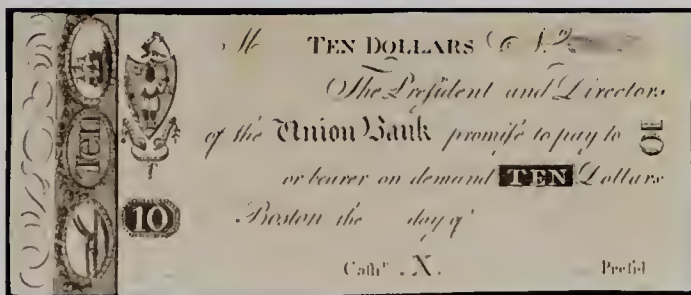 TEN DOLLARS
The President and Directors
of the Union Bank promise to pay to
or bearer on demand TEN Dollars
Boston the day of
Cashr. .X. Presid.
Ten
10
10